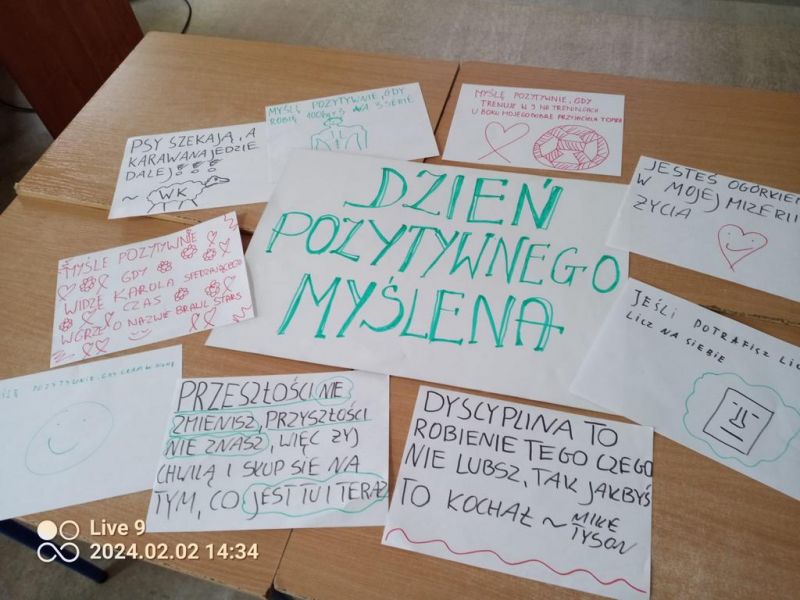 PSY SZEKAJĄ, A
KARAWANA JEDZIE
DALEJ
~ WK
MYŚLĘ POZYTYWNIE, GDY
ROBIĘ 100kg x 3 NA 3 SERIE
MYŚLĘ POZYTYWNIE, GDY
TRENUJE W 9 NA TRENINGACH
U BOKU MOJEGO DOBRE PRZYJACIELA TOMKA
JESTEŚ OGÓRKIEM
W MOJEJ MIZERII
ŻYCIA
DZIEŃ
POZYTYWNEGO
MYŚLENA
MYŚLE POZYTYWNIE
GDY
WIDZE KAROLA SPĘDZAJĄCEGO
CZAS
W GRZE O NAZWIE BRAWL STARS
JEŚLI POTRAFISZ LIC
LICZ NA SIEBIE
POZYTYWNIE, GDY GRAM W
PRZESZŁOŚCI NIE
ZMIENISZ, PRZYSZŁOŚCI
NIE ZNASZ, WIĘC ŻYJ
CHWILĄ I SKUP SIE NA
TYM, CO JEST TU I TERAZ
DYSCYPLINA TO
ROBIENIE TEGO CZEGO
NIE LUBSZ, TAK JAKBYŚ
TO KOCHAŁ ~ MIKE
TYSON
Live 9
2024.02.02 14:34